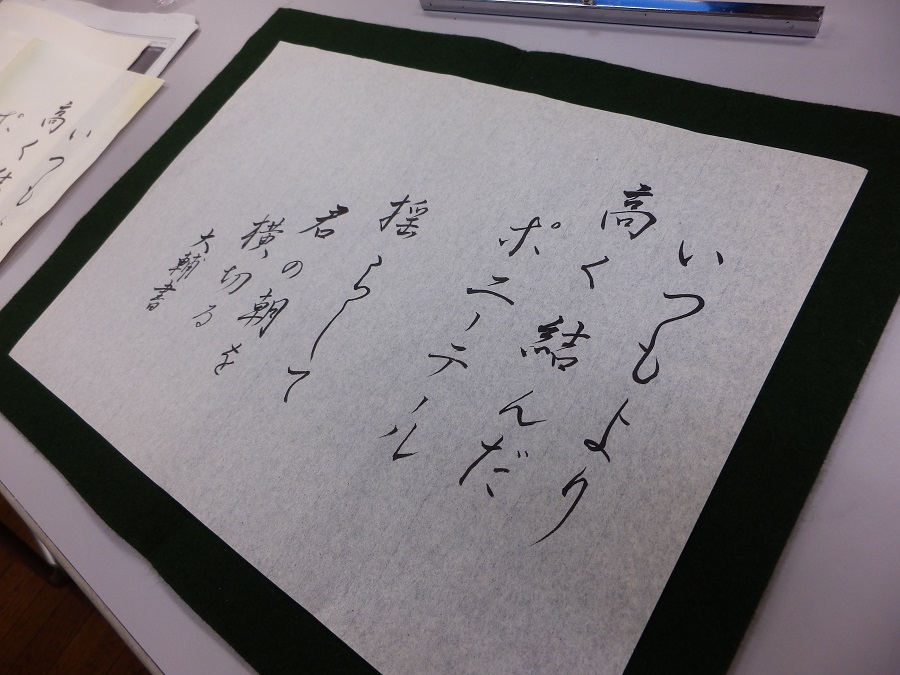 いつもより
高く結んだ
ポニーテール
揺らして
君の朝を
横切る
大輔書
いつも
高く